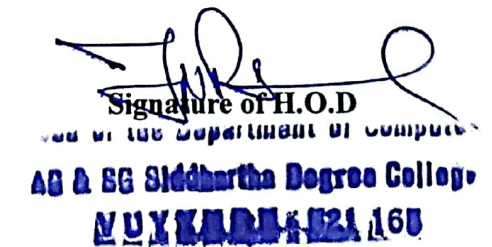 Signature of H.O.D
Head of the Department of Computer
AG & SG Siddhartha Degree College
VUYYURU-521 165